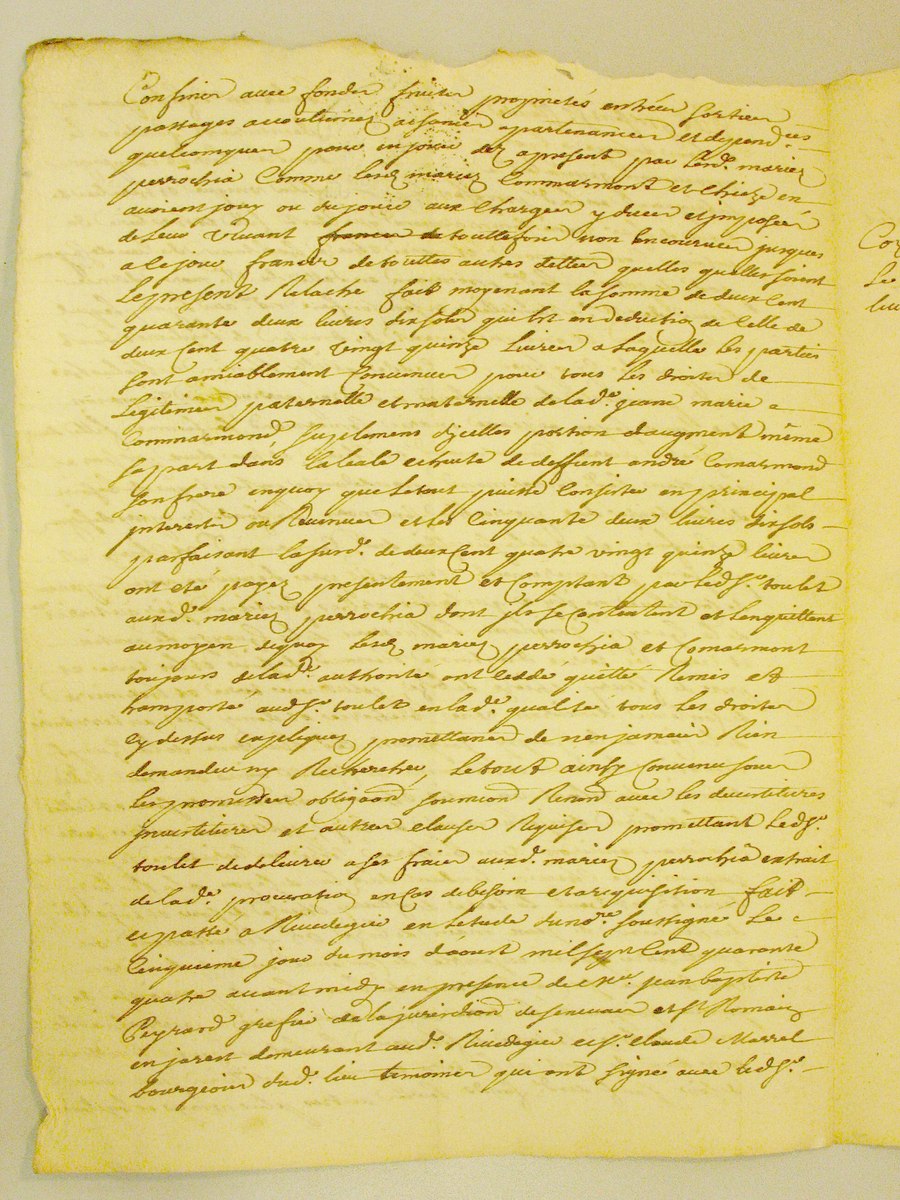 Confiner avec fonder fruiter proprietés entréer sortier
passages accoutumez aisancer apartenancer et dependces
quelconquer pour en jouir dez apresent par lesd. mariez
perrochia Comme lesd mariez Commarmont et Chieze en
avoient jouy ou du jouir aux Charger y duer et imposéer
de leur vivant toutte foir non encouruer jusques
a ce jour francer de touttes autres detter quelles quelles soient
Le present Relache fait moyenant la somme de deux Cent
quarante deux livres dix sols qui est en deduction de Celle de
deux Cent quatre vingt quinze Livrer a laquelle les parties
sont amiablement Convenuer pour tous les droiter de
Legitimer paternelle et maternelle de lad. jeane marie
Commarmond, suplemens dycelles portion daugment même
sa part dans la de deffunt andré Comarmond
son frere en quoy que le tout puisse Consister en principal
interestz ou Revenuer et les Cinquante deux livres dix sols
parfaisant la surd. de deux Cent quatre vingt quinze livrer
ont eté payez presentement et Comptant par led Sr. toulet
auxd. mariez perrochia dont ils se Contentent et lenquittent
au moyen dequoy lesd mariez perrochia et Comarmont
toujours de lad. authorité ont cedé quitté Remis et
transporté aud Sr. toulet en lad. qualité tous les droiter
cy dessus expliquez promettancer de nen jamair Rien
demander ny Rechercher, Le tout ainsy Convenu sour
les promesser obligaond soumiond Renond avec les devestitures
investiturer et autrer clauser Requiser promettant led Sr.
toulet de delivrer a ses fraier auxd. mariez perrochia extrait
de lad. procuration en Cas de besoin et arequisition fait
et passé a Rivedegier en Letude du nore. soussigné Le
Cinquieme jour du mois daoust mil sept Cent quarante
quatre avant midy en presence de me. jean baptiste
Peyrard grefier de la jurisdiond de senevaer et St Romain
en jarest demeurant aud. Rivedegier et Sr. Claude Marrel
bourgeoier dud. lieu temoiner qui ont signé avec led Sr.